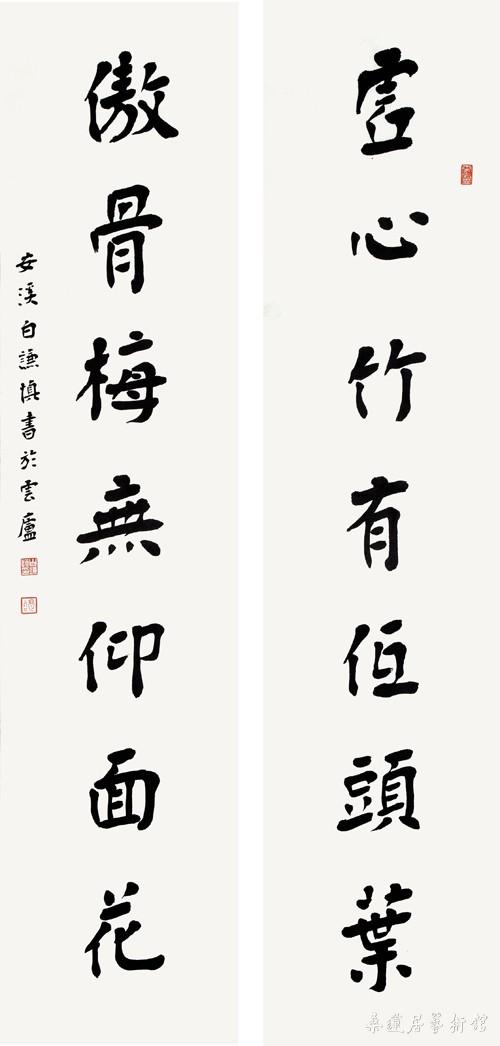 虛心竹有低頭葉
傲骨梅無仰面花
安溪白謙慎書於雲廬
桑蓮居藝術館